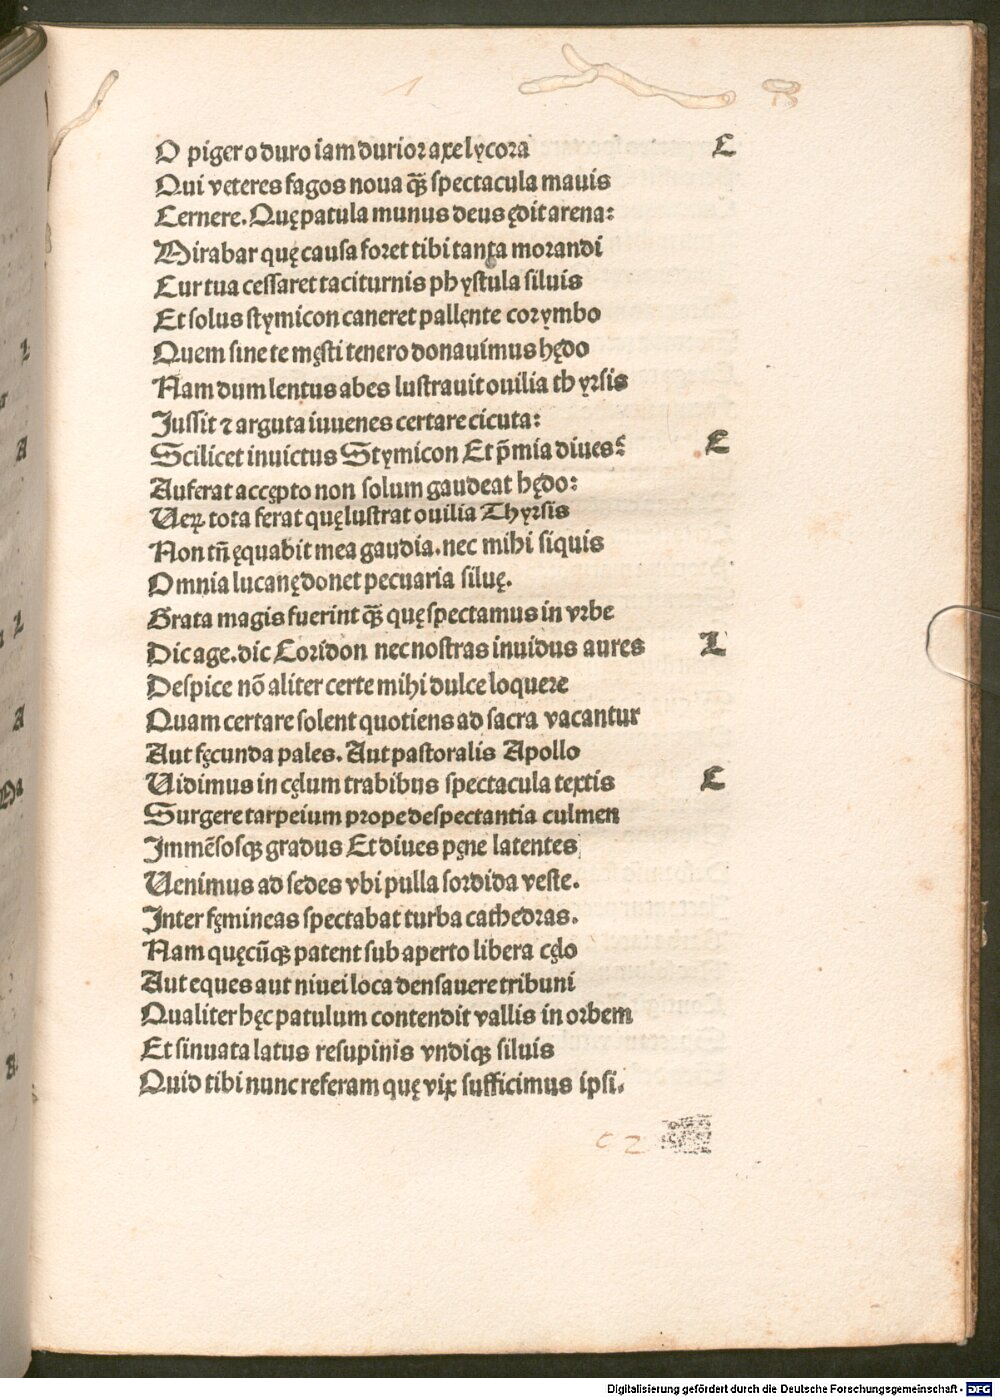 O piger o duro iam durior axe lycora C
Qui veteres fagos noua q̃ȝ spectacula mauis
Cernere. Quę patula munus deus ędit arena:
Mirabar quę causa foret tibi tanta morandi
Cur tua cessaret taciturnis phystula siluis
Et solus stymicon caneret pallente corymbo
Quem sine te męsti tenero donauimus hędo
Nam dum lentus abes lustrauit ouilia thyrsis
Jussit ⁊ arguta iuuenes certare cicuta:
Scilicet inuictus Stymicon Et p̃mia diues: C
Auferat accępto non solum gaudeat hędo:
Ueꝝ tota ferat quę lustrat ouilia Thyrsis
Non tñ ęquabit mea gaudia. nec mihi siquis
Omnia lucanę donet pecuaria siluę.
Grata magis fuerint q̃ȝ quę spectamus in vrbe
Dic age. dic Coridon nec nostras inuidus aures L
Despice nõ aliter certe mihi dulce loquere
Quam certare solent quotiens ad sacra vacantur
Aut fęcunda pales. Aut pastoralis Apollo
Uidimus in cęlum trabibus spectacula textis C
Surgere tarpeium prope despectantia culmen
Immẽsosqȝ gradus Et diues pęne latentes
Uenimus ad sedes vbi pulla sordida veste.
Inter fęmineas spectabat turba cathedras.
Nam quęcũqȝ patent sub aperto libera cęlo
Aut eques aut niuei loca densauere tribuni
Qualiter hęc patulum contendit vallis in orbem
Et sinuata latus resupinis vndiqȝ siluis
Quid tibi nunc referam quę vix sufficimus ipsi.
c 2
Digitalisierung gefördert durch die Deutsche Forschungsgemeinschaft - DFG